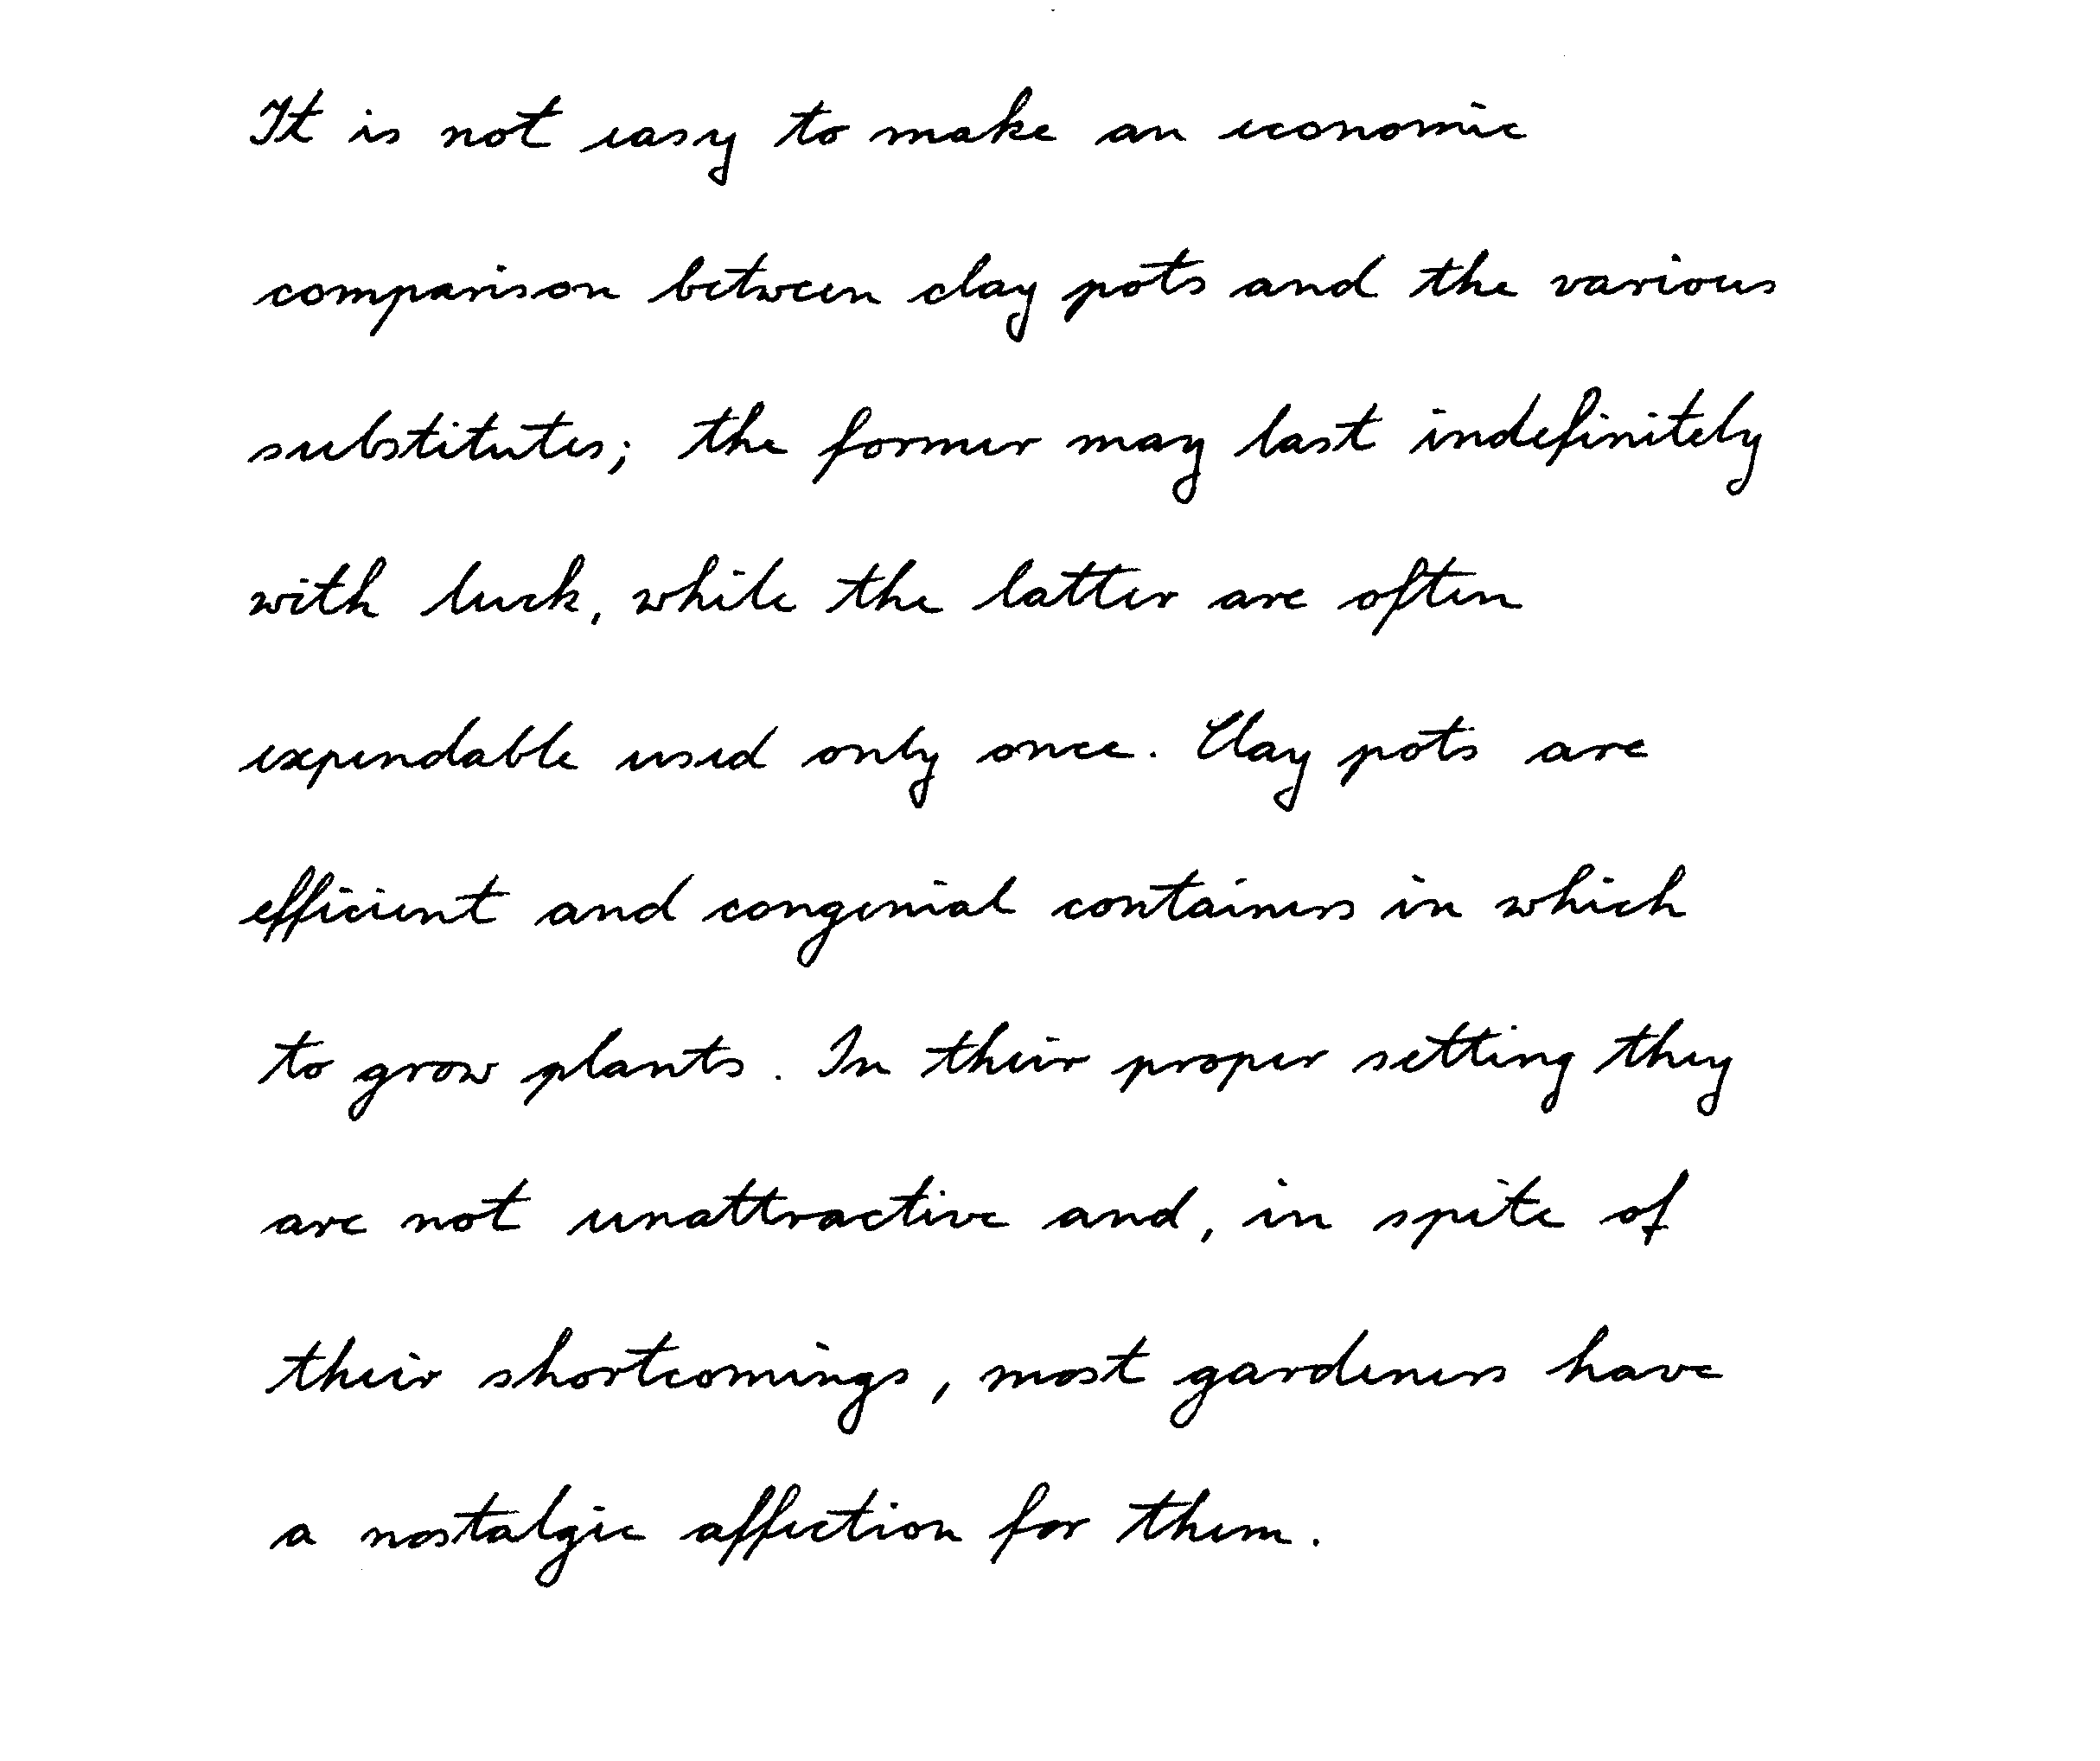 It is not easy to make an economic
comparison between clay pots and the various
substitutes; the former may last indefinitely
with luck, while the latter are often
expendable used only once. Clay pots are
efficient and congenial containers in which
to grow plants. In their proper setting they
are not unattractive and, in spite of
their shortcomings, most gardeners have
a nostalgic affection for them.